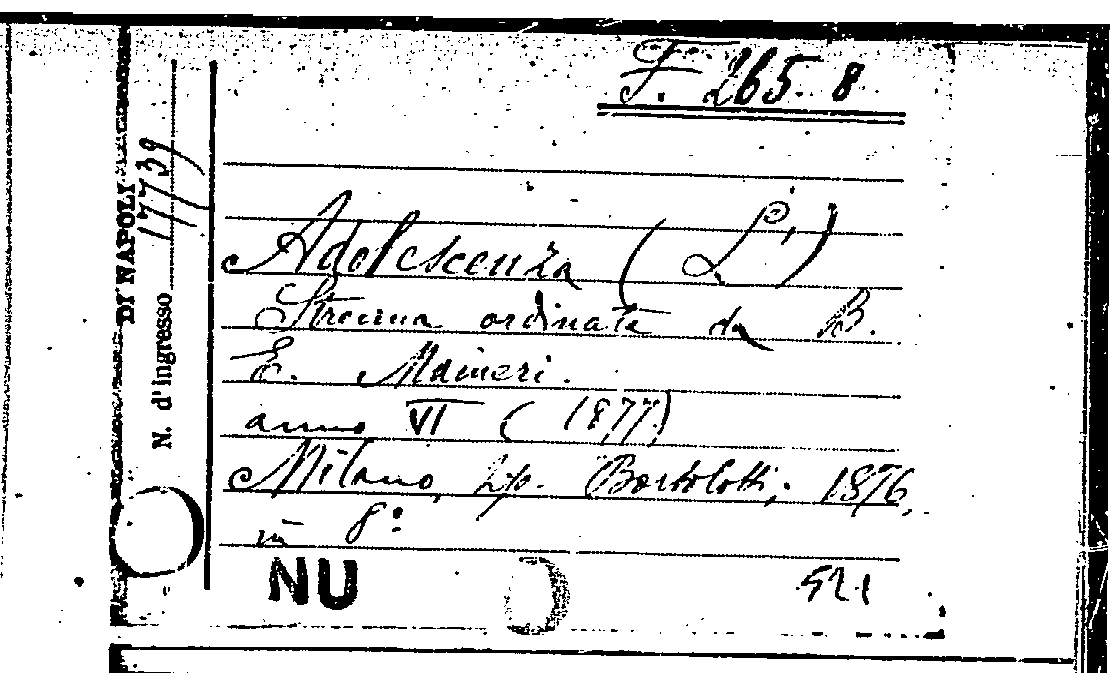 F. 265. 8.
DI NAPOLI
N. d'ingresso 17739
Adolescenza (L')
Strenna ordinata da B.
E. Maineri.
anno VI (1877)
Milano, tip. Bortolotti, 1876,
in 8º
NU
521